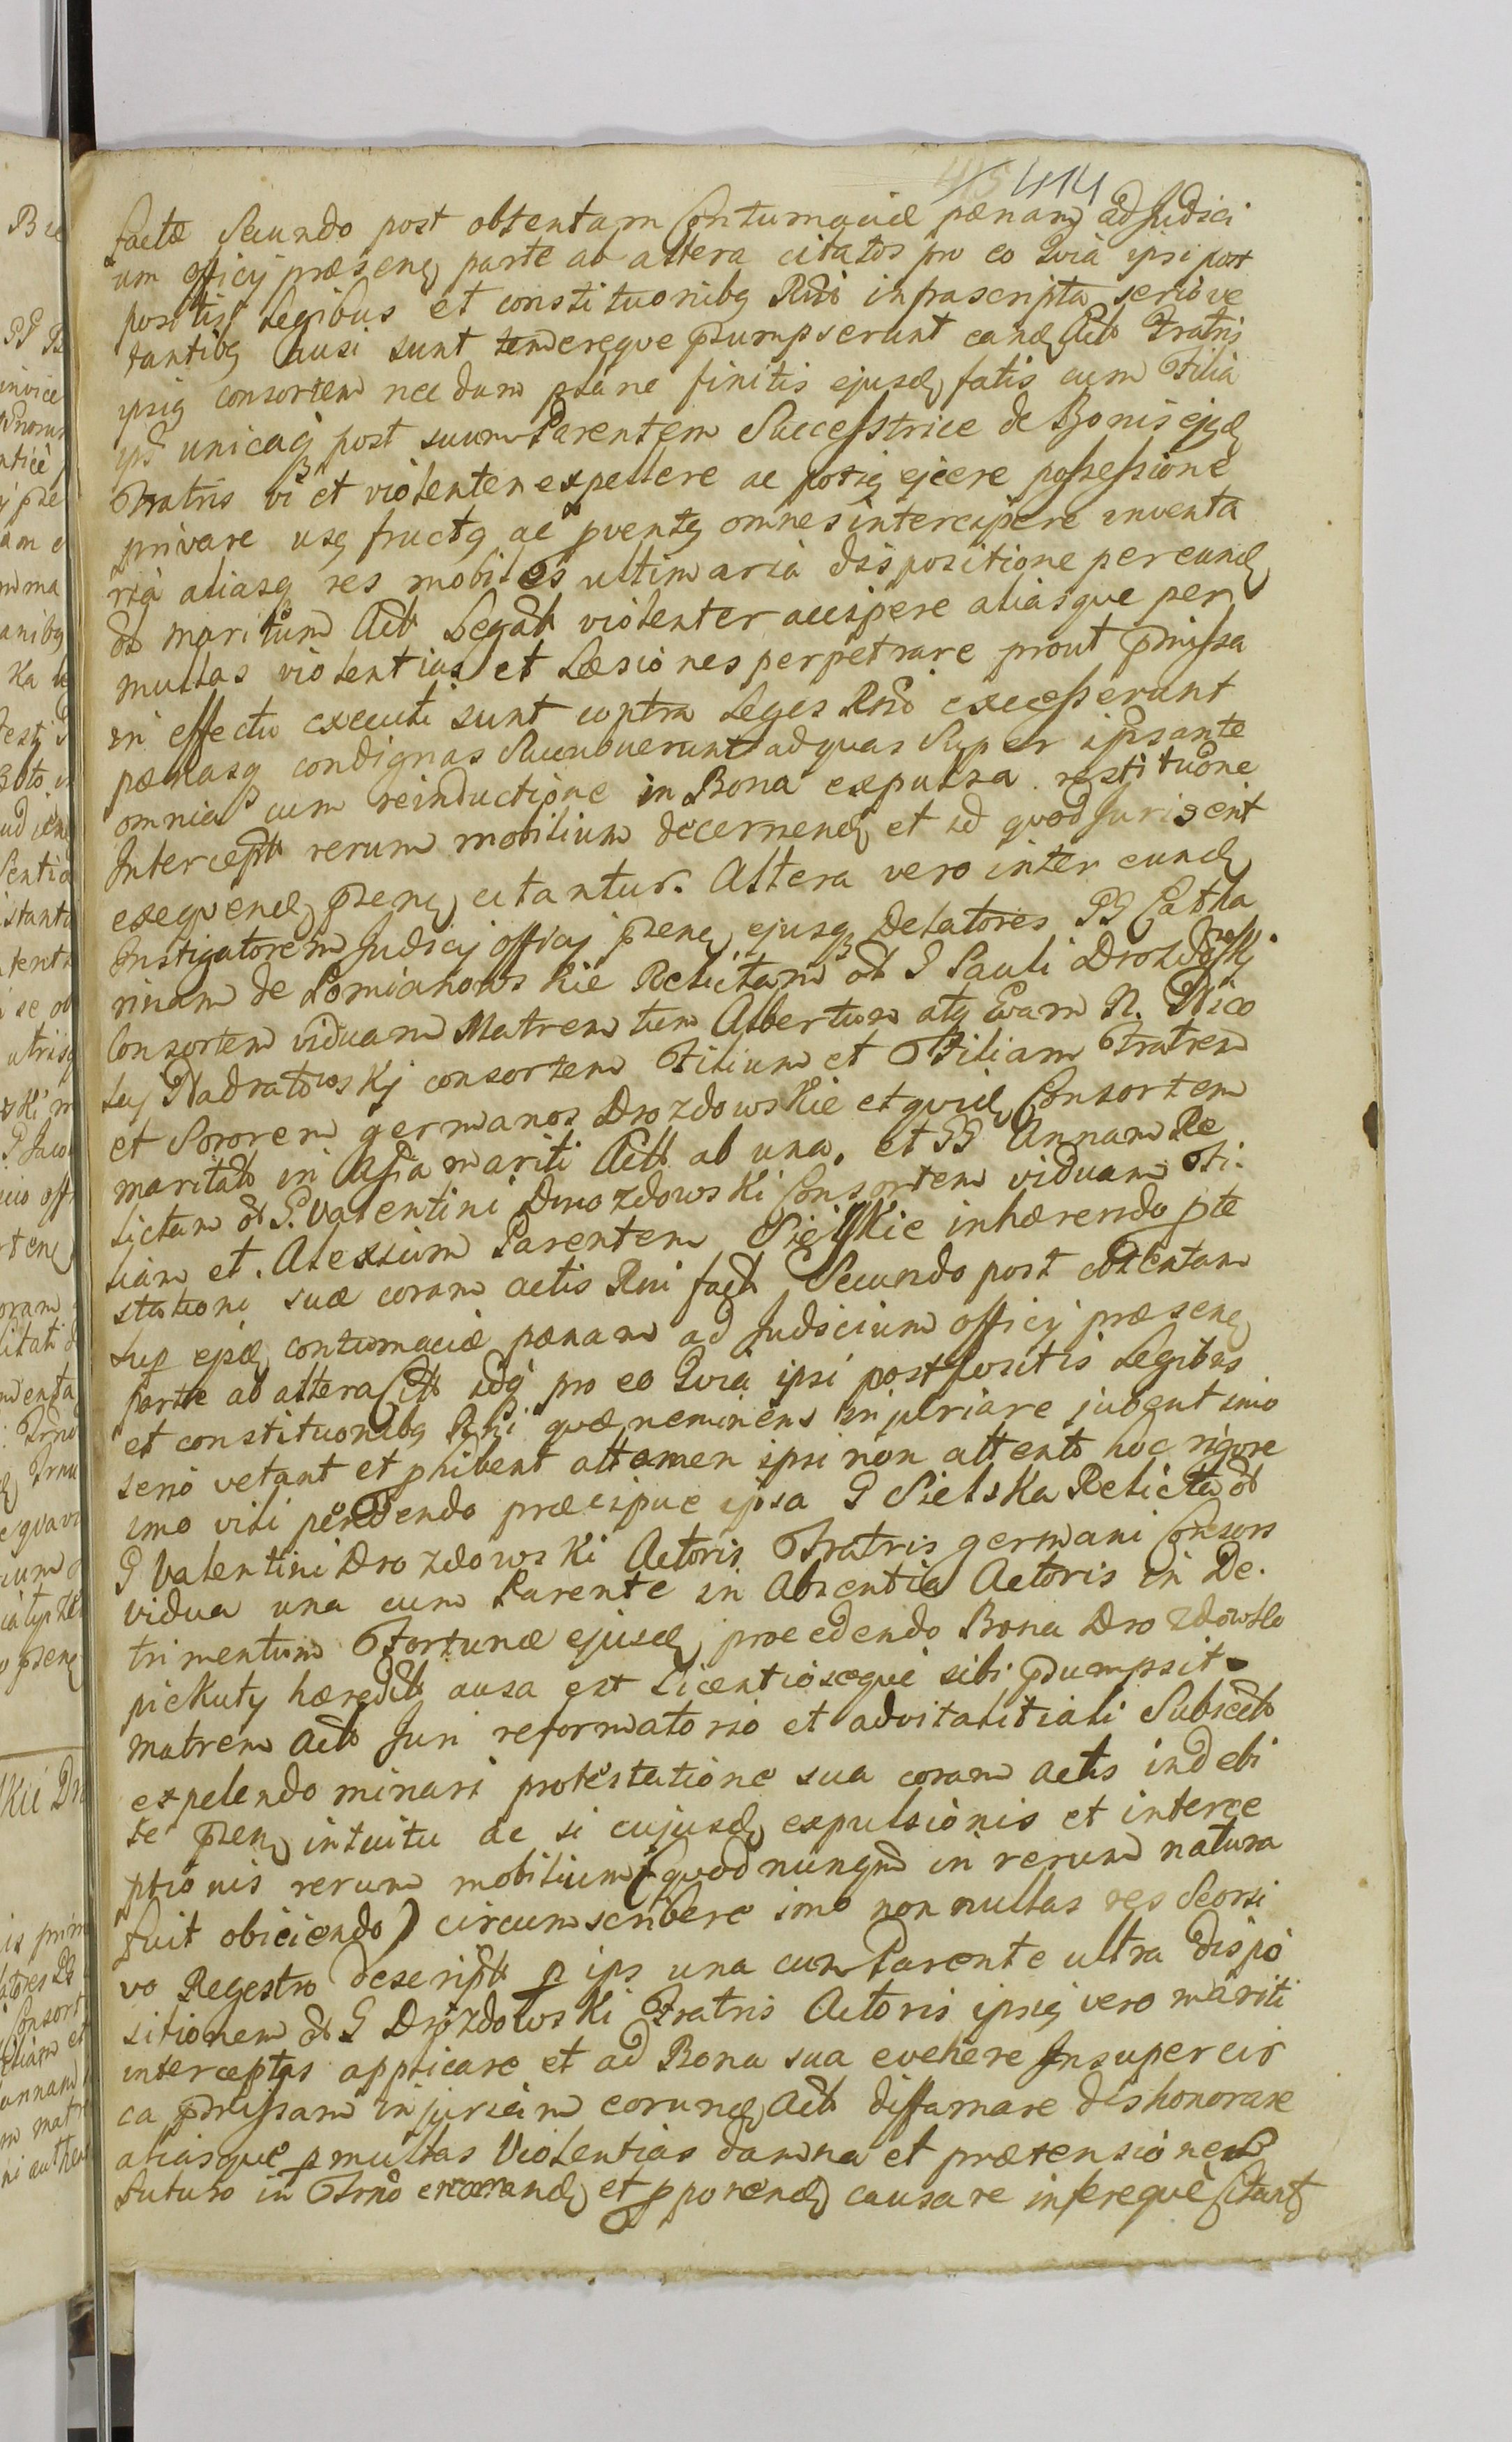 414
factæ Secundo post obtentam Contumaciæ pænam ad Judici
um officij præsens parte ab altera citatos pro eo Qvia ipsi post
positis Legibus et constituonibq Rñi infrascripta serio ve
tantibq ausi sunt temereqve Pdumpserunt eand Act Fratris
ipsiq consortem nec dum plane finitis ejusd fatis cum Filia
ipś unicaq post suum Parentem Successtrice de Bonis ejusd
Fratris vi et violenter expellere ac potiq ejcere possessione
privare usq fructq ac pventq omnes intercipere inventa
ria aliasq res mobiles ultimaria dispositione per eund
ol maritum Act Legat violenter accipere aliasque per
multas violentias et Læsiones perpetrare prout Pmissa
in effectu executi sunt contra Leges Rni excesserunt
pænasq condignas Succubuerunt ad quas Super ipsante
omnia cum reinductione in Bona expulsa restituone
Intercept rerum mobilium decernend et id quod Juris erit
exequend Psens citantur. Altera vero inter eund
Instigatorem Judicij officij Psens ejusq Delatores PP Catha
rinam de Lomianowskie Relictam ol P Pauli Drozdowskj
Consortem viduam Matrem tum Albertum atq Evam N. Nico
laj Nadratowskj consortem Filium et Filiam Fratrem
et Sororem germanos Drozdowskie et quid Consortem
maritat in Assia mariti Act ab una. et PP Annam Re
lictam ol P. Valentini Drozdowski Consortem viduam Fi.
liam et. Alexium Parentem Sielskie inhærendo pte
stationi suæ coram actis Rni fact Secundo post obtentam
sup episd contumaciæ pænam ad Judicium officij præsens
parte ab altera Citt idq pro eo Qvia ipsi postpositis Legibus
et constituonibq Rni quæ neminem injuriare jubent imo
serio vetant et phibent attamen ipsi non attento hoc rigore
imo vili pendendo præcipue ipsa P Sielska Relicta ol
P Valentini Drozdowski Actoris Fratris germani Consors
vidua una cum Parente in Absentia Actoris in De.
trimentum Fortunæ ejusd procedendo Bona Drozdowo
piekuty hæredit ausa est Licentioseque sibi Pdumpsit
matrem Act Juri reformatorio et advitalitiali Subiect
expelendo minari protestatione sua coram actis indebi
te Psens intuitu ac si cujusd expulsionis et interce
ptionis rerum mobilium (quod nunqm in rerum natura
fuit obiciendo) circumscribere imo nonnullas res Seorsi
vo Regestro descript p ips una cum Parente ultra dispo
sitionem ol P Drozdowski Fratris Actoris ipsiq vero mariti
interceptas applicare et ad Bona sua evehere Insuper cir
ca Pmissam injuriam eorund Act diffamare dishonorare
aliasque p multas Violentias damna et prætensiones
futuro in Frno enarrand et pponend causare inferequè Citant